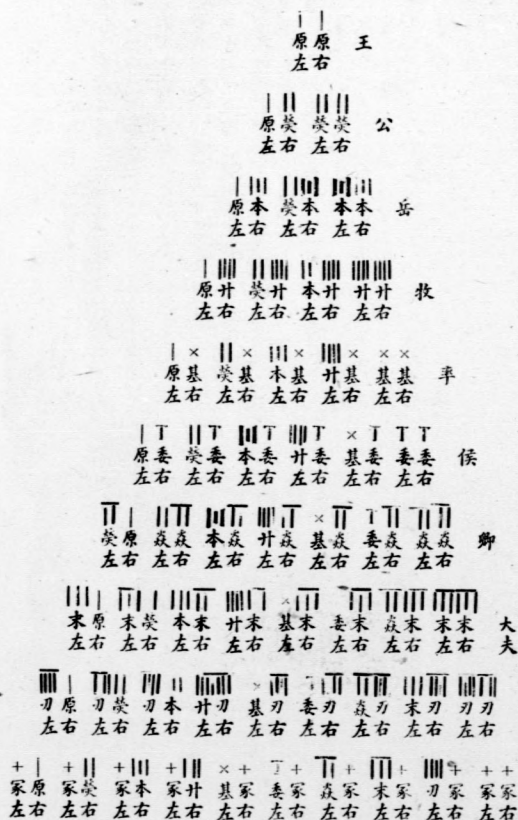 原原 王
左右
原熒 熒熒 公
左右 左右
原本 熒本 本本 岳
左右 左右 左右
原卝 熒卝 本卝 卝卝 牧
左右 左右 左右 左右
原基 熒基 本基 卝基 基基 率
左右 左右 左右 左右 左右
原委 熒委 本委 卝委 基委 委委 侯
左右 左右 左右 左右 左右 左右
熒原 焱焱 本焱 卝焱 基焱 委焱 焱焱 卿
左右 左右 左右 左右 左右 左右 左右
末原 末熒 本末 卝末 基末 委末 焱末 末末 大夫
左右 左右 左右 左右 左右 左右 左右 左右
刃原 刃熒 刃本 卝刃 基刃 委刃 焱刃 末刃 刃刃
左右 左右 左右 左右 左右 左右 左右 左右 左右
冢原 冢熒 冢本 冢卝 基冢 委冢 焱冢 末冢 刃冢 冢冢
左右 左右 左右 左右 左右 左右 左右 左右 左右 左右